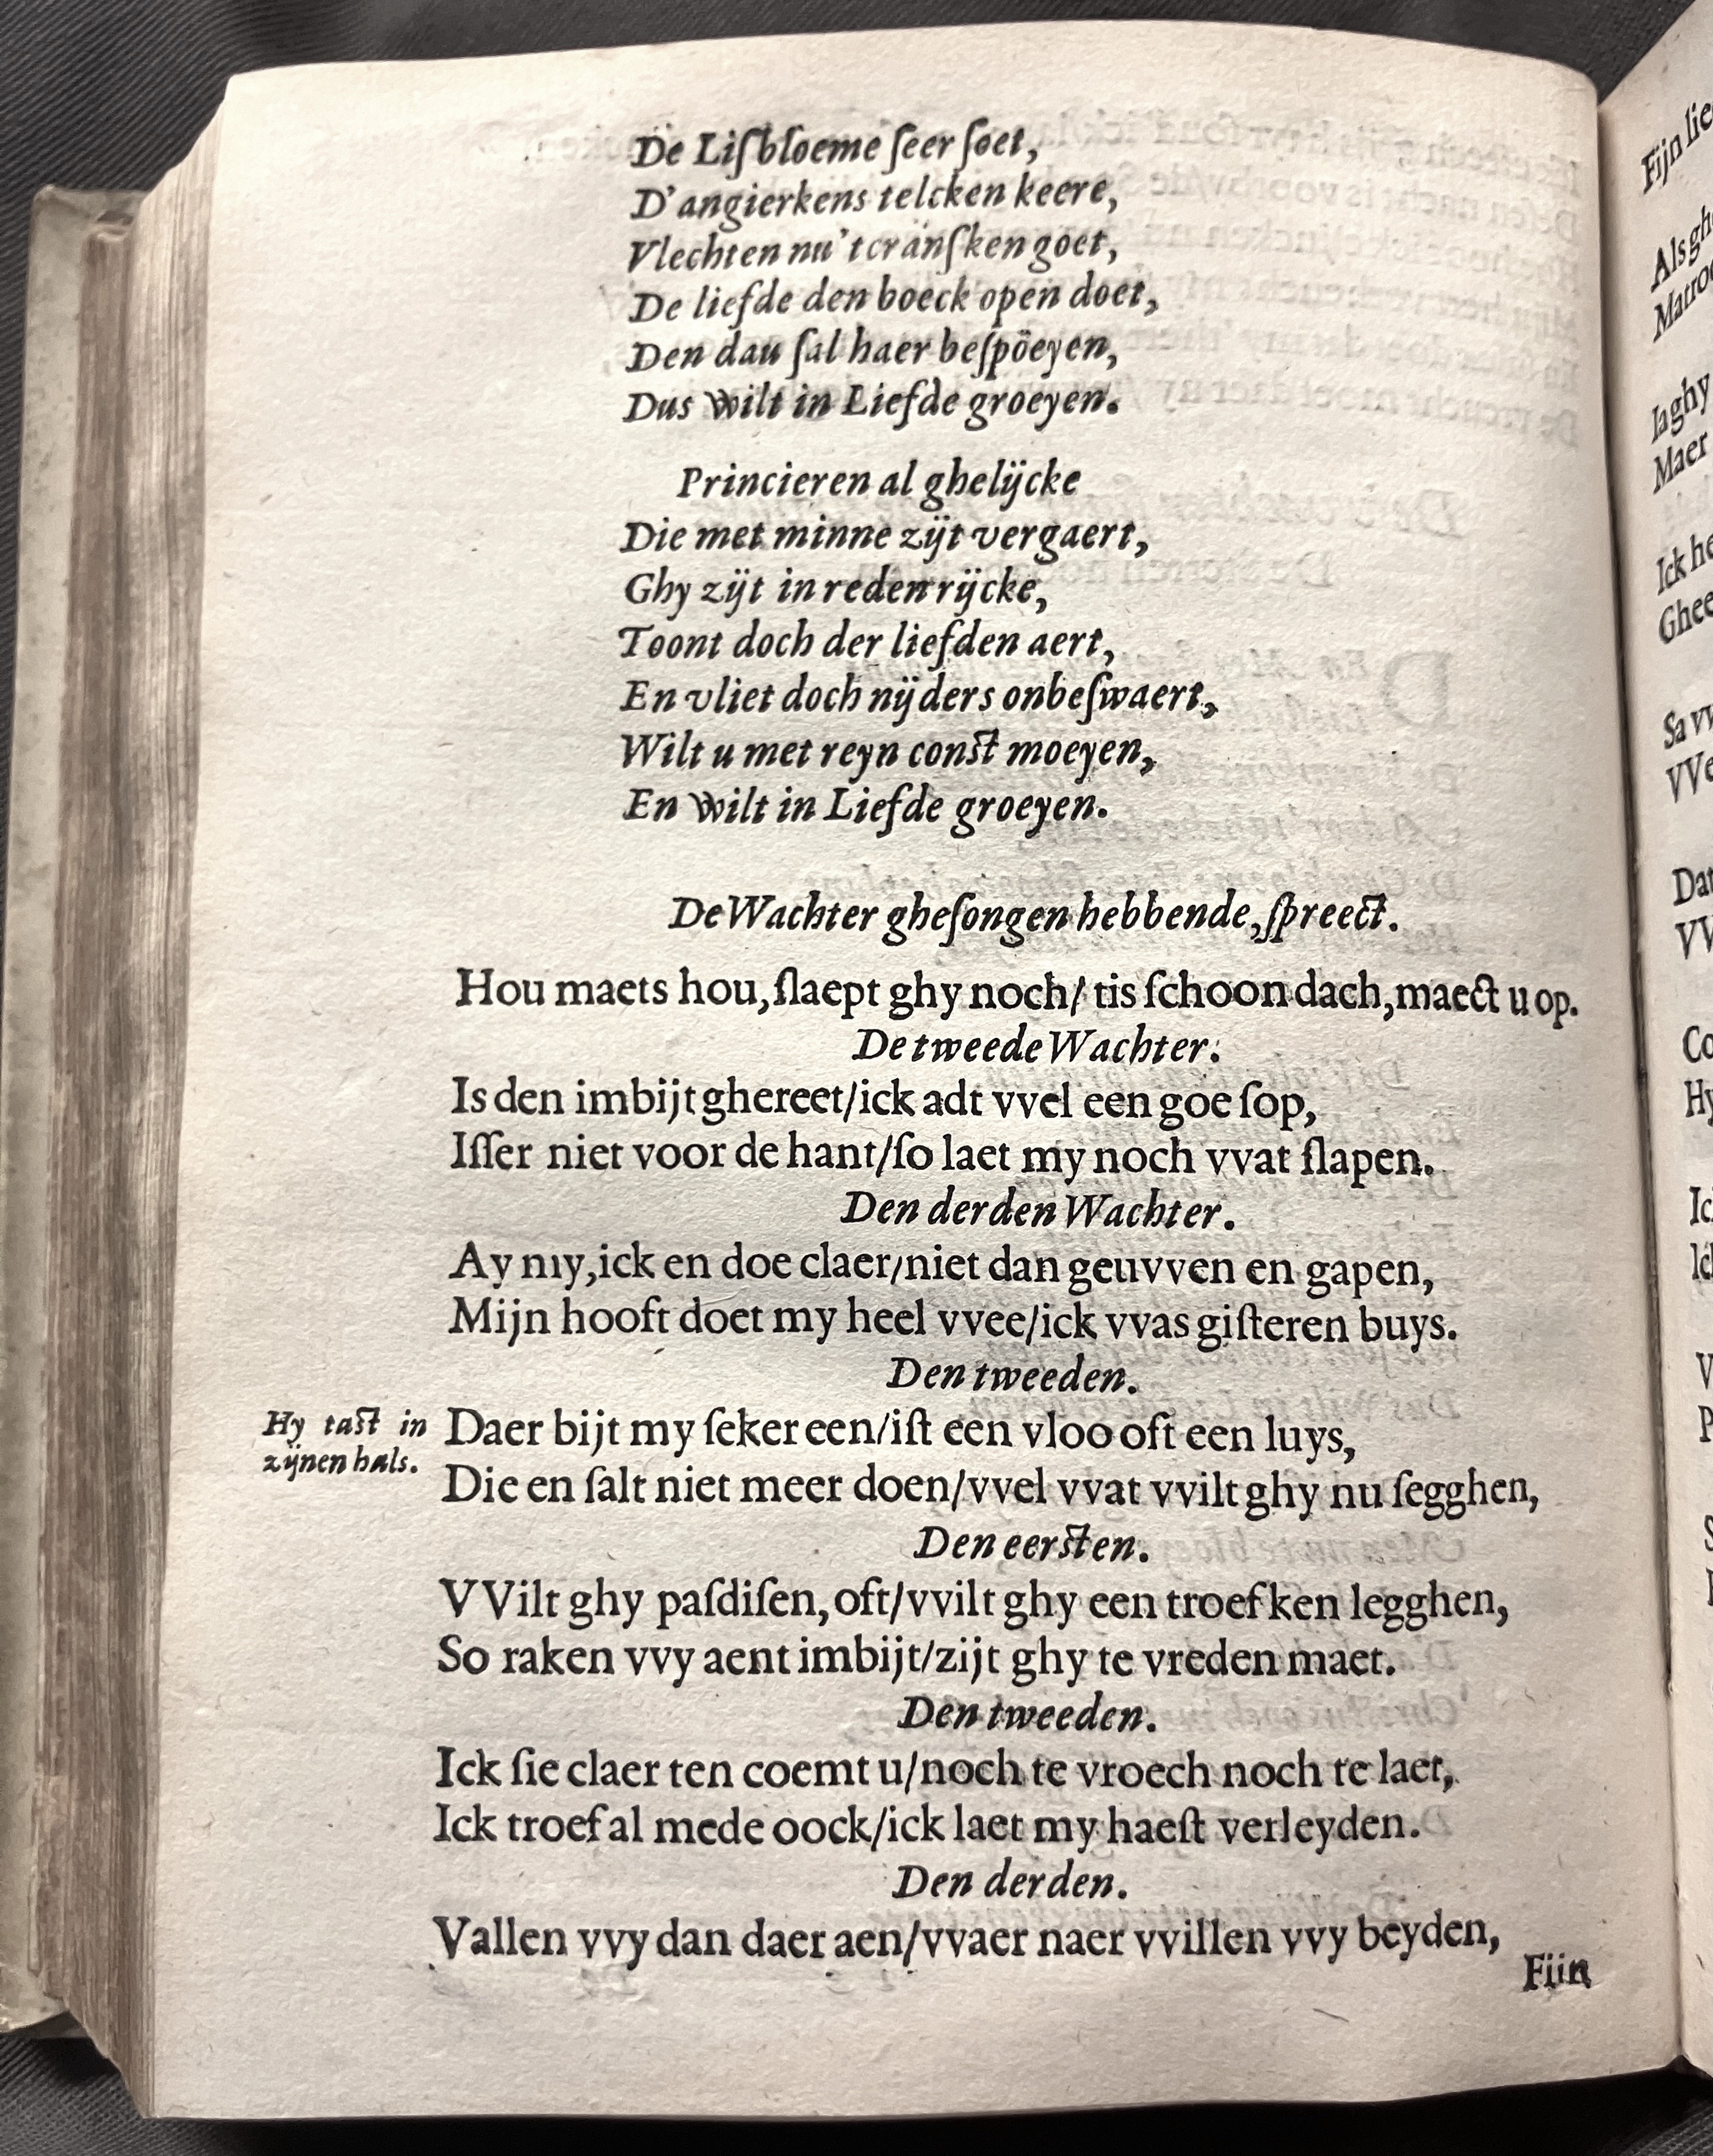 De Liſbloeme ſeer ſoet,
D'angierkens telcken keere,
Vlechten nu 't cranſken goet,
De liefde den boeck open doet,
Den dau ſal haer beſpöeyen,
Dus wilt in Liefde groeyen.
Princieren al ghelijcke
Die met minne zijt vergaert,
Ghy zijt in reden rijcke,
Toont doch der liefden aert,
En vliet doch nijders onbeſwaert,
Wilt u met reyn conſt moeyen,
En wilt in Liefde groeyen.
De Wachter gheſongen hebbende, ſpreect.
Hou maets hou, ſlaept ghy noch/ tis ſchoon dach, maect u op.
De tweede Wachter.
Is den imbijt ghereet/ick adt vvel een goe ſop,
Iſſer niet voor de hant/ſo laet my noch vvat ſlapen.
Den derden Wachter.
Ay my, ick en doe claer/niet dan geuvven en gapen,
Mijn hooft doet my heel vvee/ick vvas giſteren buys.
Den tweeden.
Hy taſt in
zijnen hals.
Daer bijt my ſeker een/iſt een vloo oft een luys,
Die en ſalt niet meer doen/vvel vvat vvilt ghy nu ſegghen,
Den eerſten.
VVilt ghy paſdiſen, oft/vvilt ghy een troefken legghen,
So raken vvy aent imbijt/zijt ghy te vreden maet.
Den tweeden.
Ick ſie claer ten coemt u/noch te vroech noch te laet,
Ick troef al mede oock/ick laet my haeſt verleyden.
Den derden.
Vallen vvy dan daer aen/vvaer naer vvillen vvy beyden,
Fiin